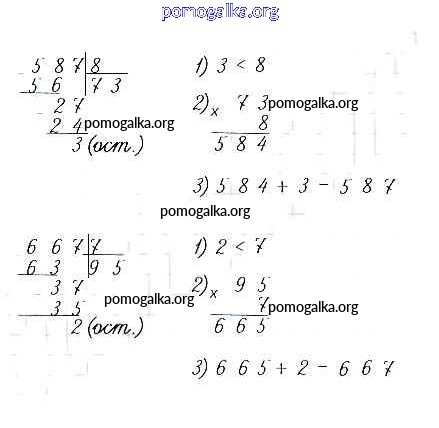 pomogalka.org
5 8 7 8
5 6 7 3
2 7
2 4 pomogalka.org
3 (ост.)
1) 3 < 8
2) x 7 3 pomogalka.org
8
5 8 4
3) 5 8 4 + 3 - 5 8 7
pomogalka.org
6 6 7 7
6 3 9 5
3 7
3 5 pomogalka.org
2 (ост.)
1) 2 < 7
2) x 9 5
7 pomogalka.org
6 6 5
3) 6 6 5 + 2 - 6 6 7